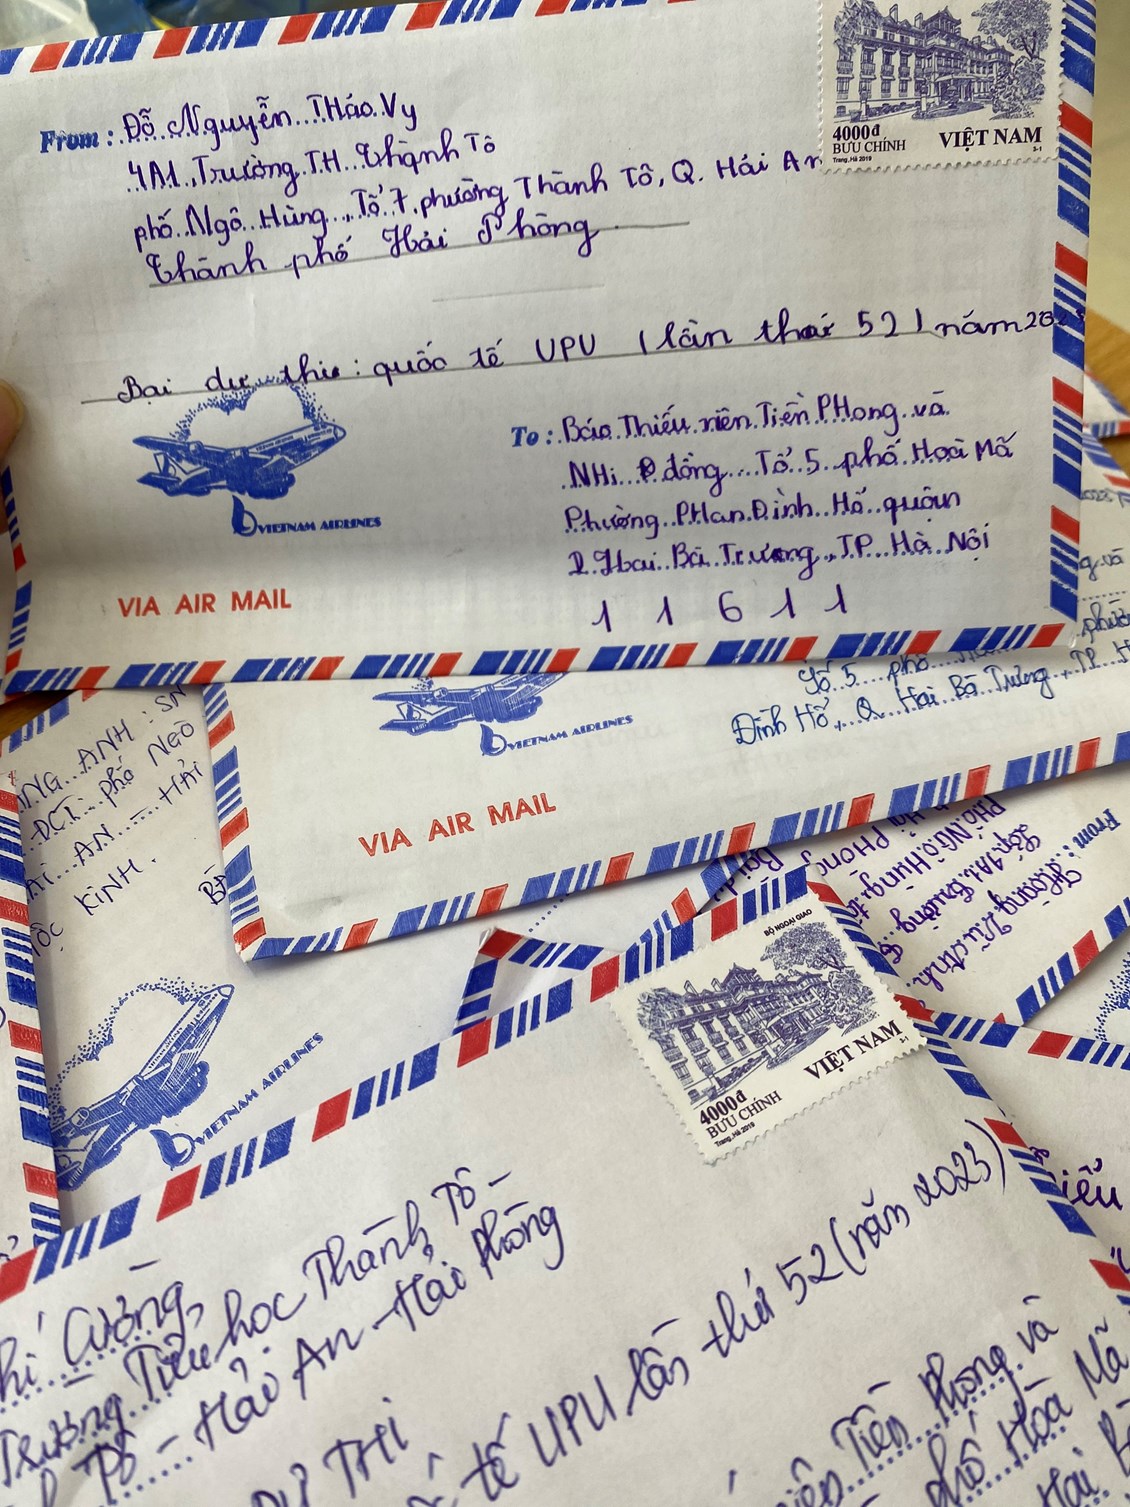 From: Đỗ Nguyễn THảo Vy
4A1, Trường TH Thành Tô
phố Ngô Hùng, Tổ 7, phường Thành Tô, Q. Hải An
Thành phố Hải Phòng
4000đ
BƯU CHÍNH
Trang, Hà 2019
VIỆT NAM
5-1
Bài dự thi: quốc tế UPU (lần thứ 52) năm 2023
To: Báo Thiếu niên Tiền PHong và
NHi đồng Tổ 5 phố Hoà Mã
Phường PHan Đình Hổ quận
Hai Bà Trưng, TP Hà Nội
1 1 6 1 1
VIETNAM AIRLINES
VIA AIR MAIL
Số 5 phố
Đình Hổ, Q Hai Bà Trưng, TP H
VIETNAM AIRLINES
VIA AIR MAIL
ANH : SN
phố NGÔ
AN HẢI
KÍNH.
VIETNAM AIRLINES
From:
Hoàng Vũ
Lớp 1A1 Trường
PHố NGÔ Hùng
PHòng
BỘ NGOẠI GIAO
4000đ
BƯU CHÍNH
Trang, Hà 2019
VIỆT NAM
5-1
Cường,
Trường Tiểu học Thành Tô -
Tô - Hải An - Hải Phòng
DỰ THI
tế UPU lần thứ 52 (năm 2023)
Tiền phong và
phố Hòa Mã
Hai